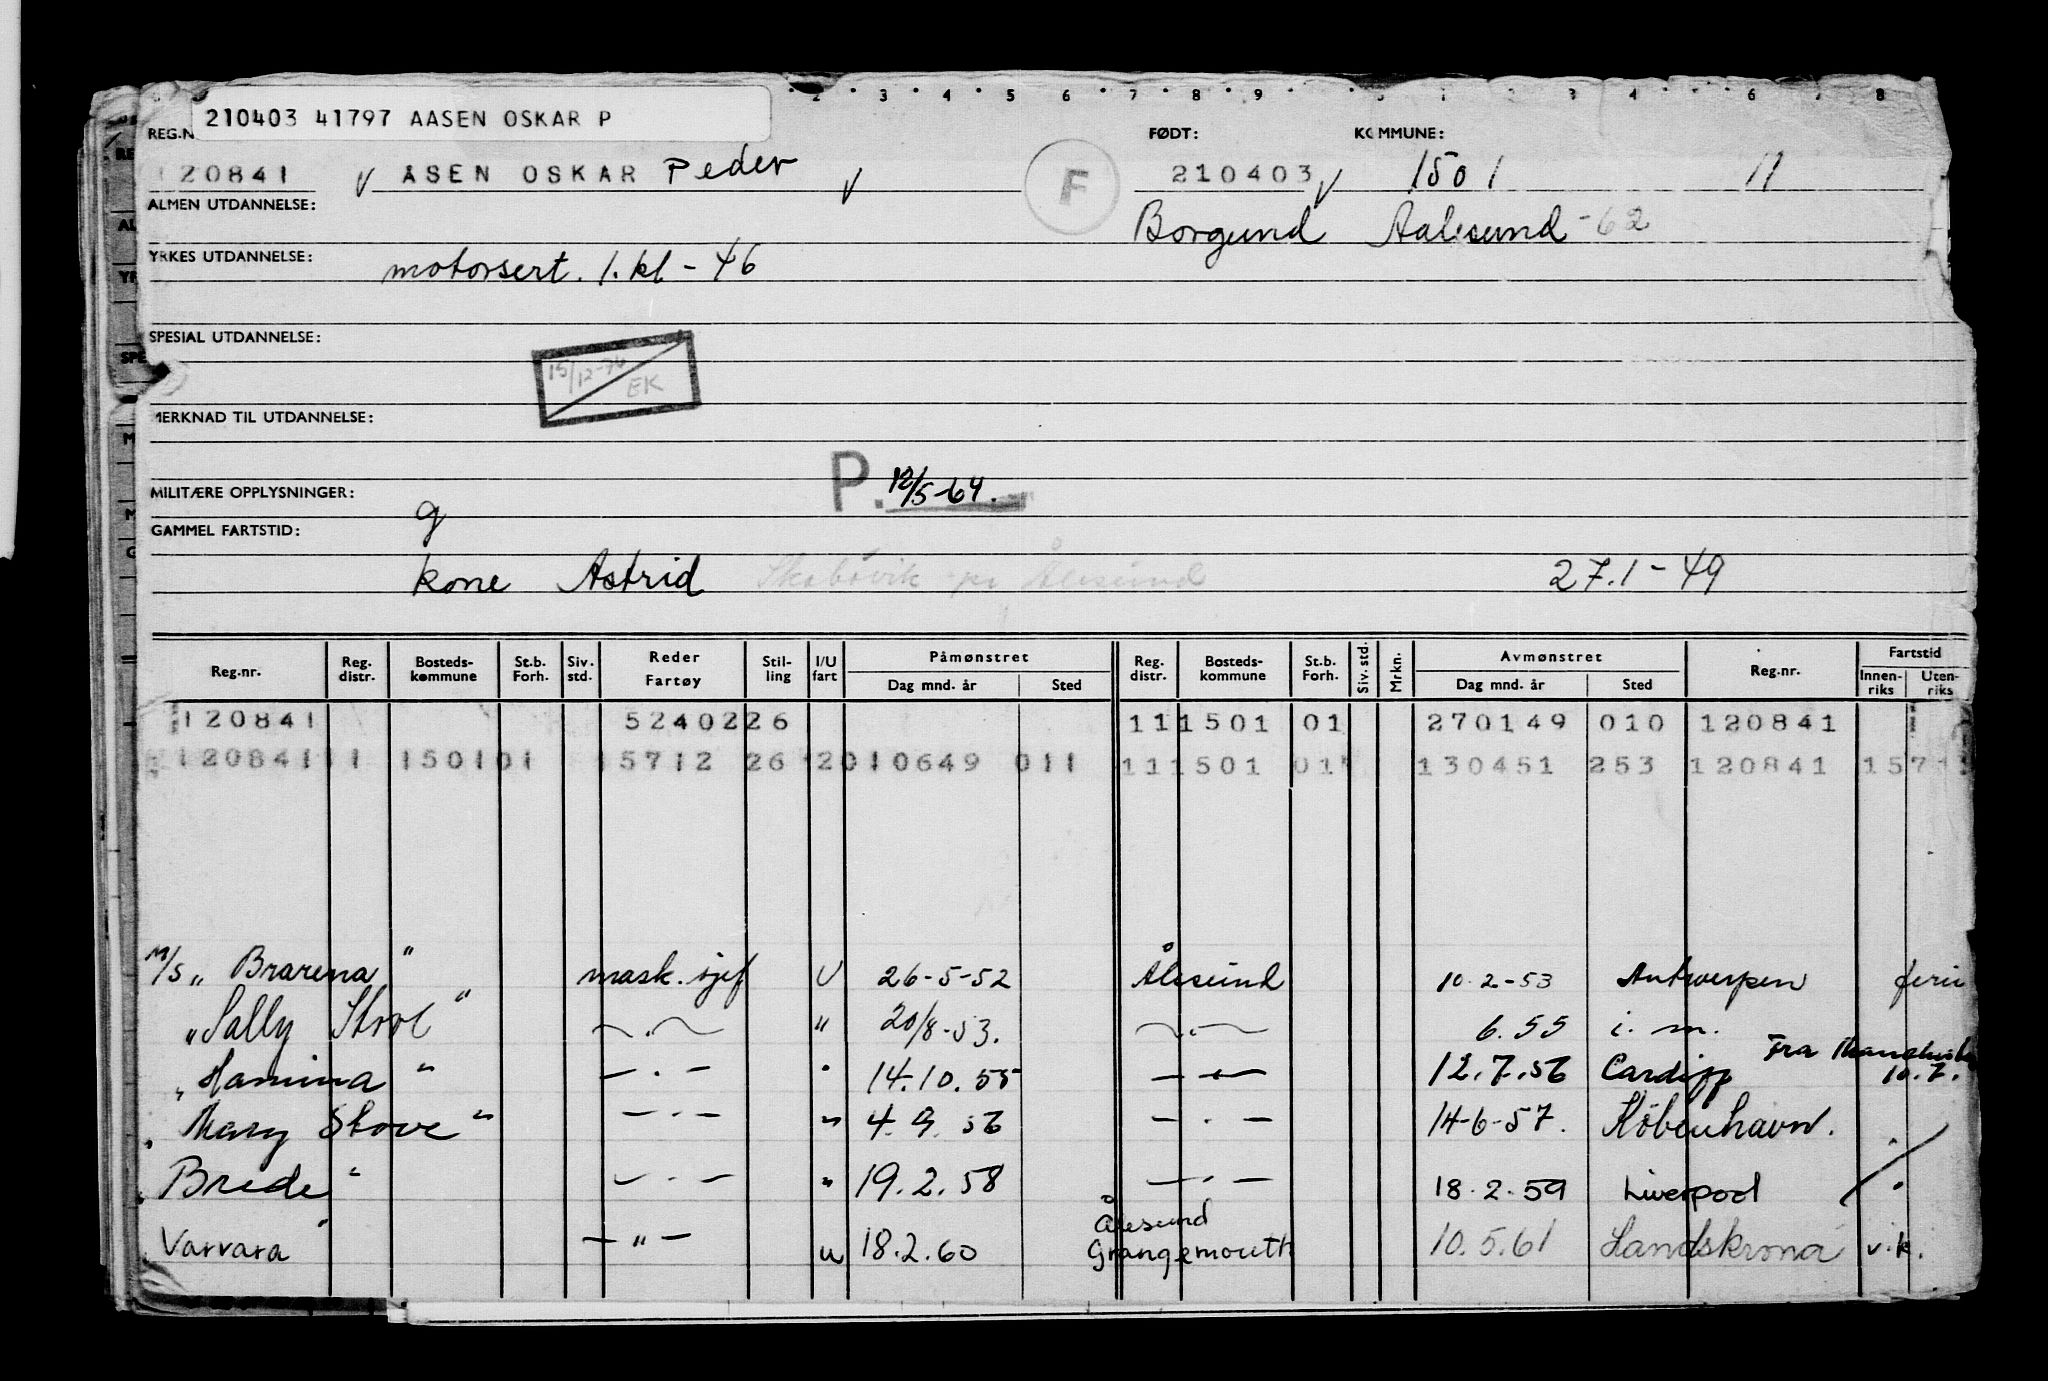 2 3 4 5 6 7 8 9 1 2 3 4 6 7 8
210403 41797 AASEN OSKAR P
REG.N FØDT: KOMMUNE:
120841 V ÅSEN OSKAR Peder V F 210403 V 1501 11
ALMEN UTDANNELSE: Borgund Aalesund -62
YRKES UTDANNELSE: motorsert. 1. kl - 46
SPESIAL UTDANNELSE:
15/12-76 EK
MERKNAD TIL UTDANNELSE:
P. 12/5-64.
MILITÆRE OPPLYSNINGER: g
GAMMEL FARTSTID:
kone Astrid pr Ålesund 27.1-49
Reg.nr. Reg. distr. Bosteds- kommune St.b. Forh. Siv. std. Reder Fartøy Stil- ling I/U fart Påmønstret Dag mnd. år Sted Reg. distr. Bosteds- kommune St.b. Forh. Siv. std. Mrkn. Avmønstret Dag mnd. år Sted Reg.nr. Fartstid Innen- riks Uten- riks
120841 5240226 111501 01 270149 010 120841
120841 11 150101 15712 26 2010649 011 111501 01 130451 253 120841 157
M/S „ Brarena " mask. sjef U 26-5-52 Ålesund 10.2-53 Antwerpen ferie
„ Sally Stove " — . — " 20/8-53. — . — 6.55 i. m.
„ Hamina " — . — " 14.10.55 — . — 12.7.56 Cardiff Fra 10.7.
„ Mary Stove " — . — " 4.9.56 — . — 14-6-57. København.
„ Brede " — . — " 19.2.58 — . — 18.2.59 Liverpool
Varvara " — " — u 18.2.60 Ålesund Grangemouth 10.5.61 Landskrona v.k.